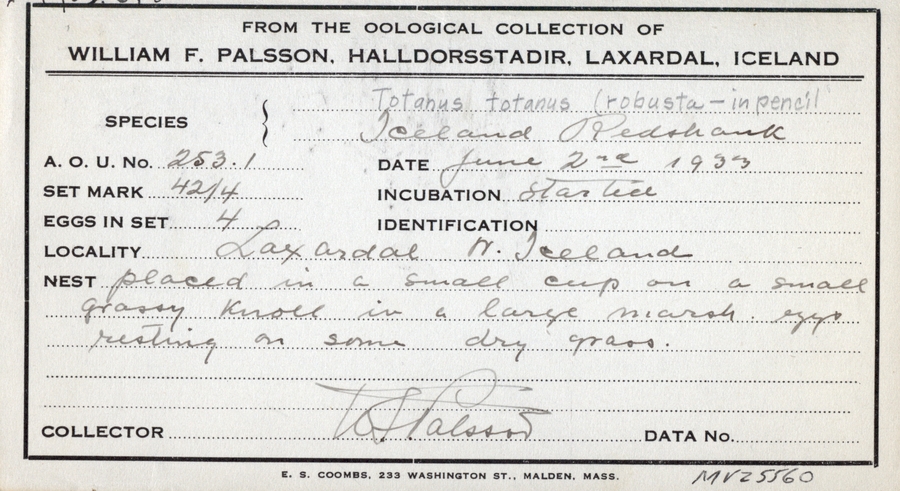 FROM THE OOLOGICAL COLLECTION OF
WILLIAM F. PALSSON, HALLDORSSTADIR, LAXARDAL, ICELAND
Totanus totanus (robusta – in pencil
SPECIES } Iceland Redshank
A. O. U. No. 253.1 DATE June 2nd 1933
SET MARK 42/4 INCUBATION started
EGGS IN SET 4 IDENTIFICATION
LOCALITY Laxardal N. Iceland
NEST placed in a small cup on a small
grassy knoll in a large marsh. eggs
resting on some dry grass.
COLLECTOR W F Palsson DATA No.
E. S. COOMBS, 233 WASHINGTON ST., MALDEN, MASS.
MVZ5560